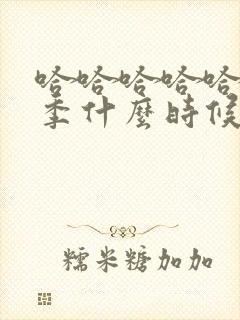 哈哈哈哈哈
季什麼時候
糯米糖加加